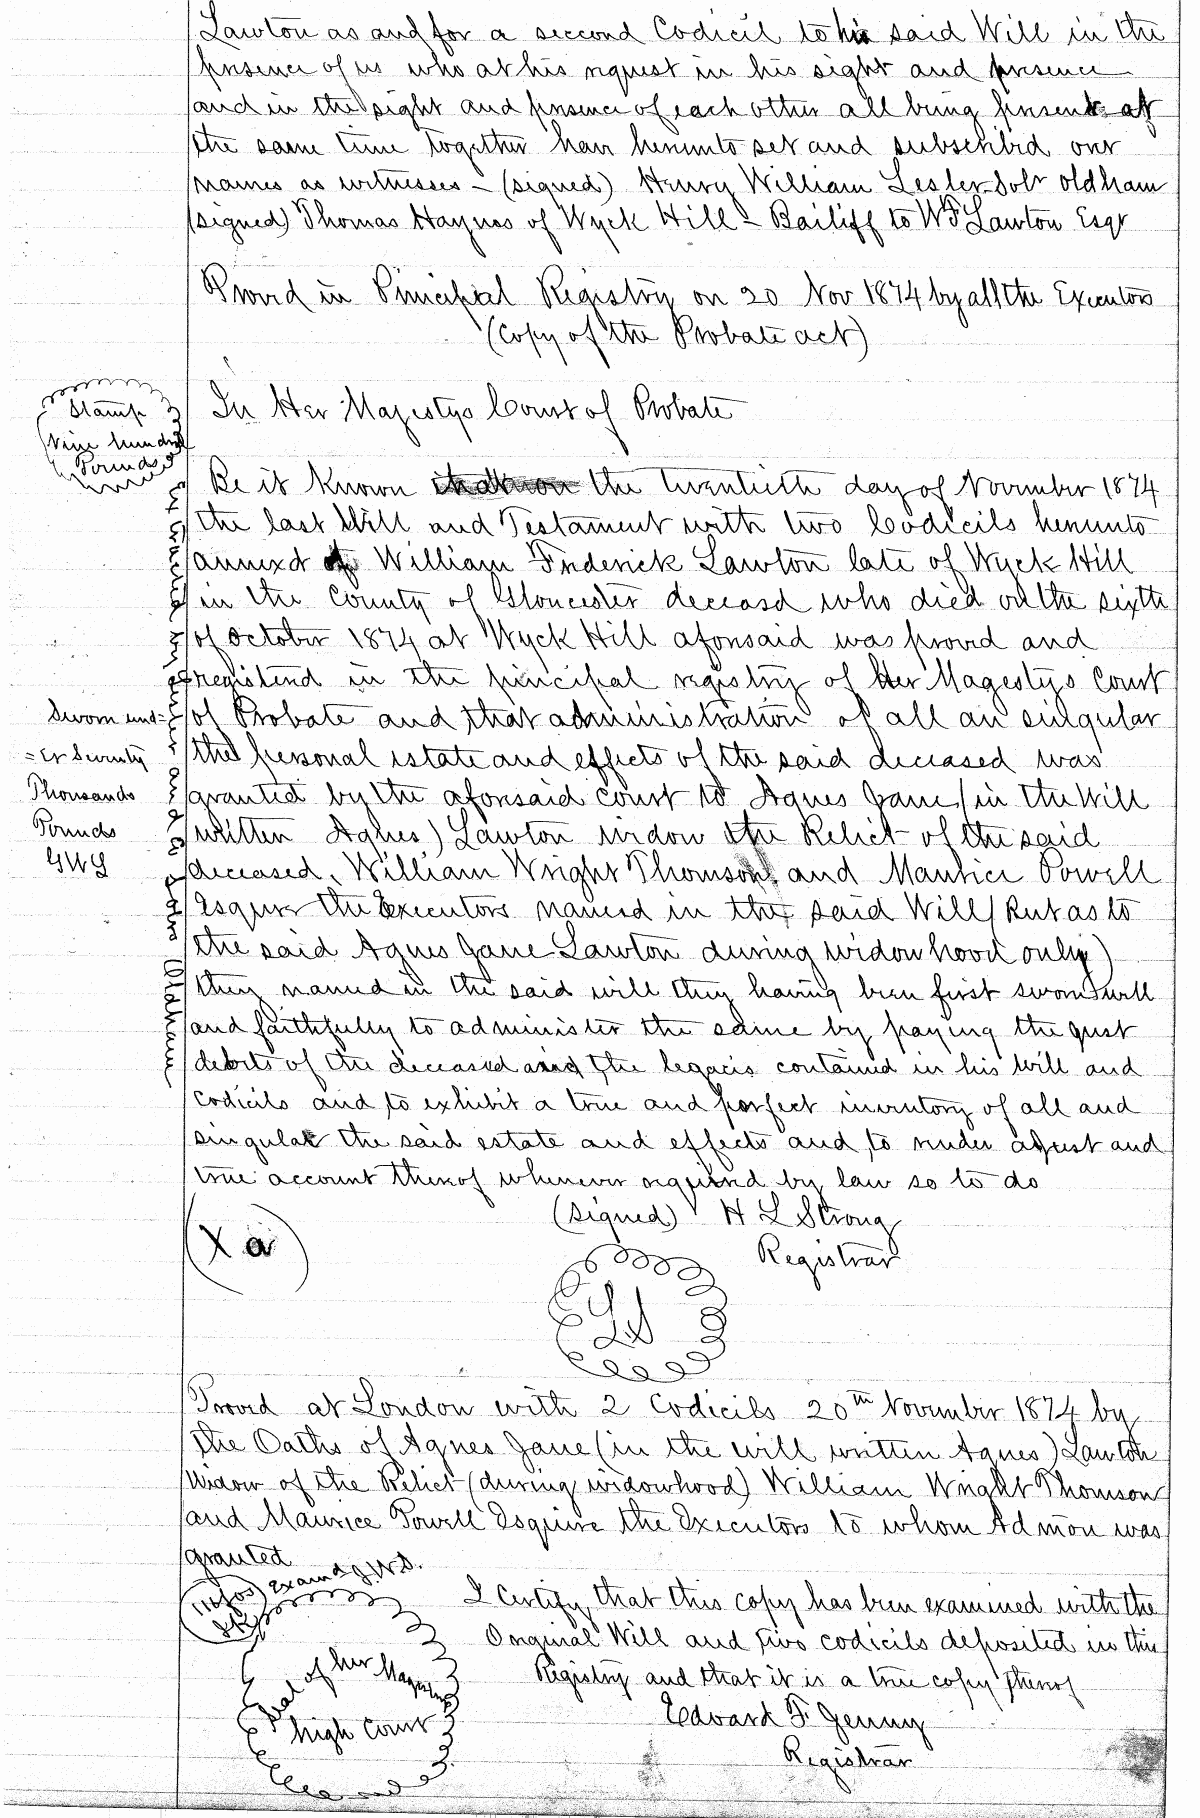 Lawton as and for a second Codicil to his said Will in the
presence of us who at his request in his sight and presence
and in the sight and presence of each other all being present at
the same time together have hereunto set and subscribed our
names as witnesses – (signed) Henry William Lesler Solr Oldham
(signed) Thomas Haynes of Wyck Hill – Bailiff to W F Lawton Esqr
Proved in Principal Registry on 20 Nov 1874 by all the Executors
(Copy of the Probate act)
Stamp
Nine hundred
Pounds
In Her Majestys Court of Probate
Be it known the twentieth day of November 1874
the last Will and Testament with two Codicils hereunto
annexed of William Frederick Lawton late of Wyck Hill
in the County of Gloucester deceased who died on the sixth
of October 1874 at Wyck Hill aforesaid was proved and
registered in the principal registry of Her Magestys Court
of Probate and that administration of all an singular
the personal estate and effects of the said deceased was
granted by the aforesaid court to Agnes Jane (in the Will
written Agnes) Lawton widow the Relict of the said
deceased, William Wright Thomson and Maurice Powell
Esquire the Executors named in the said Will (But as to
the said Agnes Jane Lawton during widowhood only)
they named in the said will they having been first sworn well
and faithfully to administer the same by paying the just
debts of the deceased and the legacies contained in his will and
Codicils and to exhibit a true and perfect inventory of all and
singular the said estate and effects and to render a just and
true account thereof whenever required by law so to do
Sworn und=
=er Seventy
Thousands
Pounds
GWS
(signed) H L Strong
Registrar
X a
LS
Proved at London with 2 Codicils 20th November 1874 by
the Oaths of Agnes Jane (in the will written Agnes) Lawton
Widow of the Relict (during widowhood) William Wright Thomson
and Maurice Powell Esquire the Executors to whom Admon was
granted
Examd
I Certify that this copy has been examined with the
Original Will and two codicils deposited in this
Registry and that it is a true copy thereof
Edward F. Jenny
Registrar
Seal of her Magestys
high Court